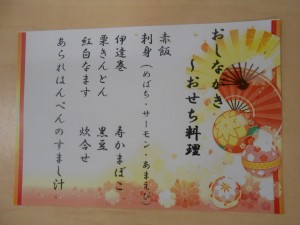 おしながき
～おせち料理
赤飯
刺身（めばち・サーモン・あまえび）
伊達巻　寿かまぼこ
栗きんとん　黒豆
紅白なます　炊合せ
あられはんぺんのすまし汁